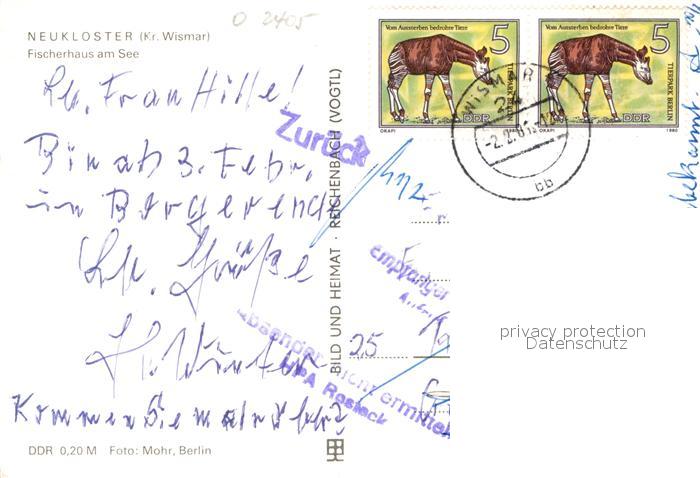 O 2405
NEUKLOSTER (Kr. Wismar)
Fischerhaus am See
Lb. Frau Hille!
Bin ab 3. Febr.
in Börgerende
Lb. Grüße
H. Winter
Kommen Sie mal rüber?
DDR 0,20 M Foto: Mohr, Berlin
BILD UND HEIMAT · REICHENBACH (VOGTL)
Zurück
Empfänger
Absender nicht ermittel
HPA Rostock
25
Vom Aussterben bedrohte Tiere
5
TIERPARK BERLIN
DDR
OKAPI 1980
Vom Aussterben bedrohte Tiere
5
TIERPARK BERLIN
DDR
OKAPI 1980
WISMAR
bb
privacy protection
Datenschutz